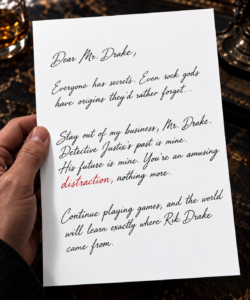 Dear Mr. Drake,
Everyone has secrets. Even rock gods
have origins they'd rather forget...
Stay out of my business, Mr. Drake.
Detective Justix's past is mine.
His future is mine. You're an amusing
distraction, nothing more.
Continue playing games, and the world
will learn exactly where Rik Drake
came from.